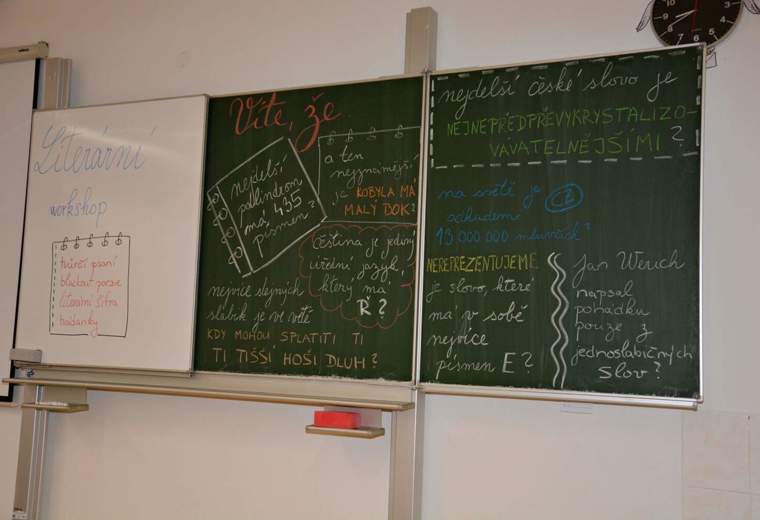 Literární
workshop
tvůrčí psaní
blackout poezie
literární šifra
hádanky
Víte, že
nejdelší
palindrom
má 435
písmen?
a ten
nejznámější
je KOBYLA MÁ
MALÝ BOK?
čeština je jediný
úřední jazyk,
který má
Ř?
nejvíce stejných
slabik je ve větě
KDY MOHOU SPLATITI TI
TI TIŠŠÍ HOŠI DLUH?
nejdelší české slovo je
NEJNEPŘEDPŘEVYKRYSTALIZO-
VÁVATELNĚJŠÍMI?
na světě je CZ
odhadem
13 000 000 mluvčích?
NEREPREZENTUJEME
je slovo, které
má v sobě
nejvíce
písmen E?
Jan Werich
napsal
pohádku
pouze z
jednoslabičných
slov?